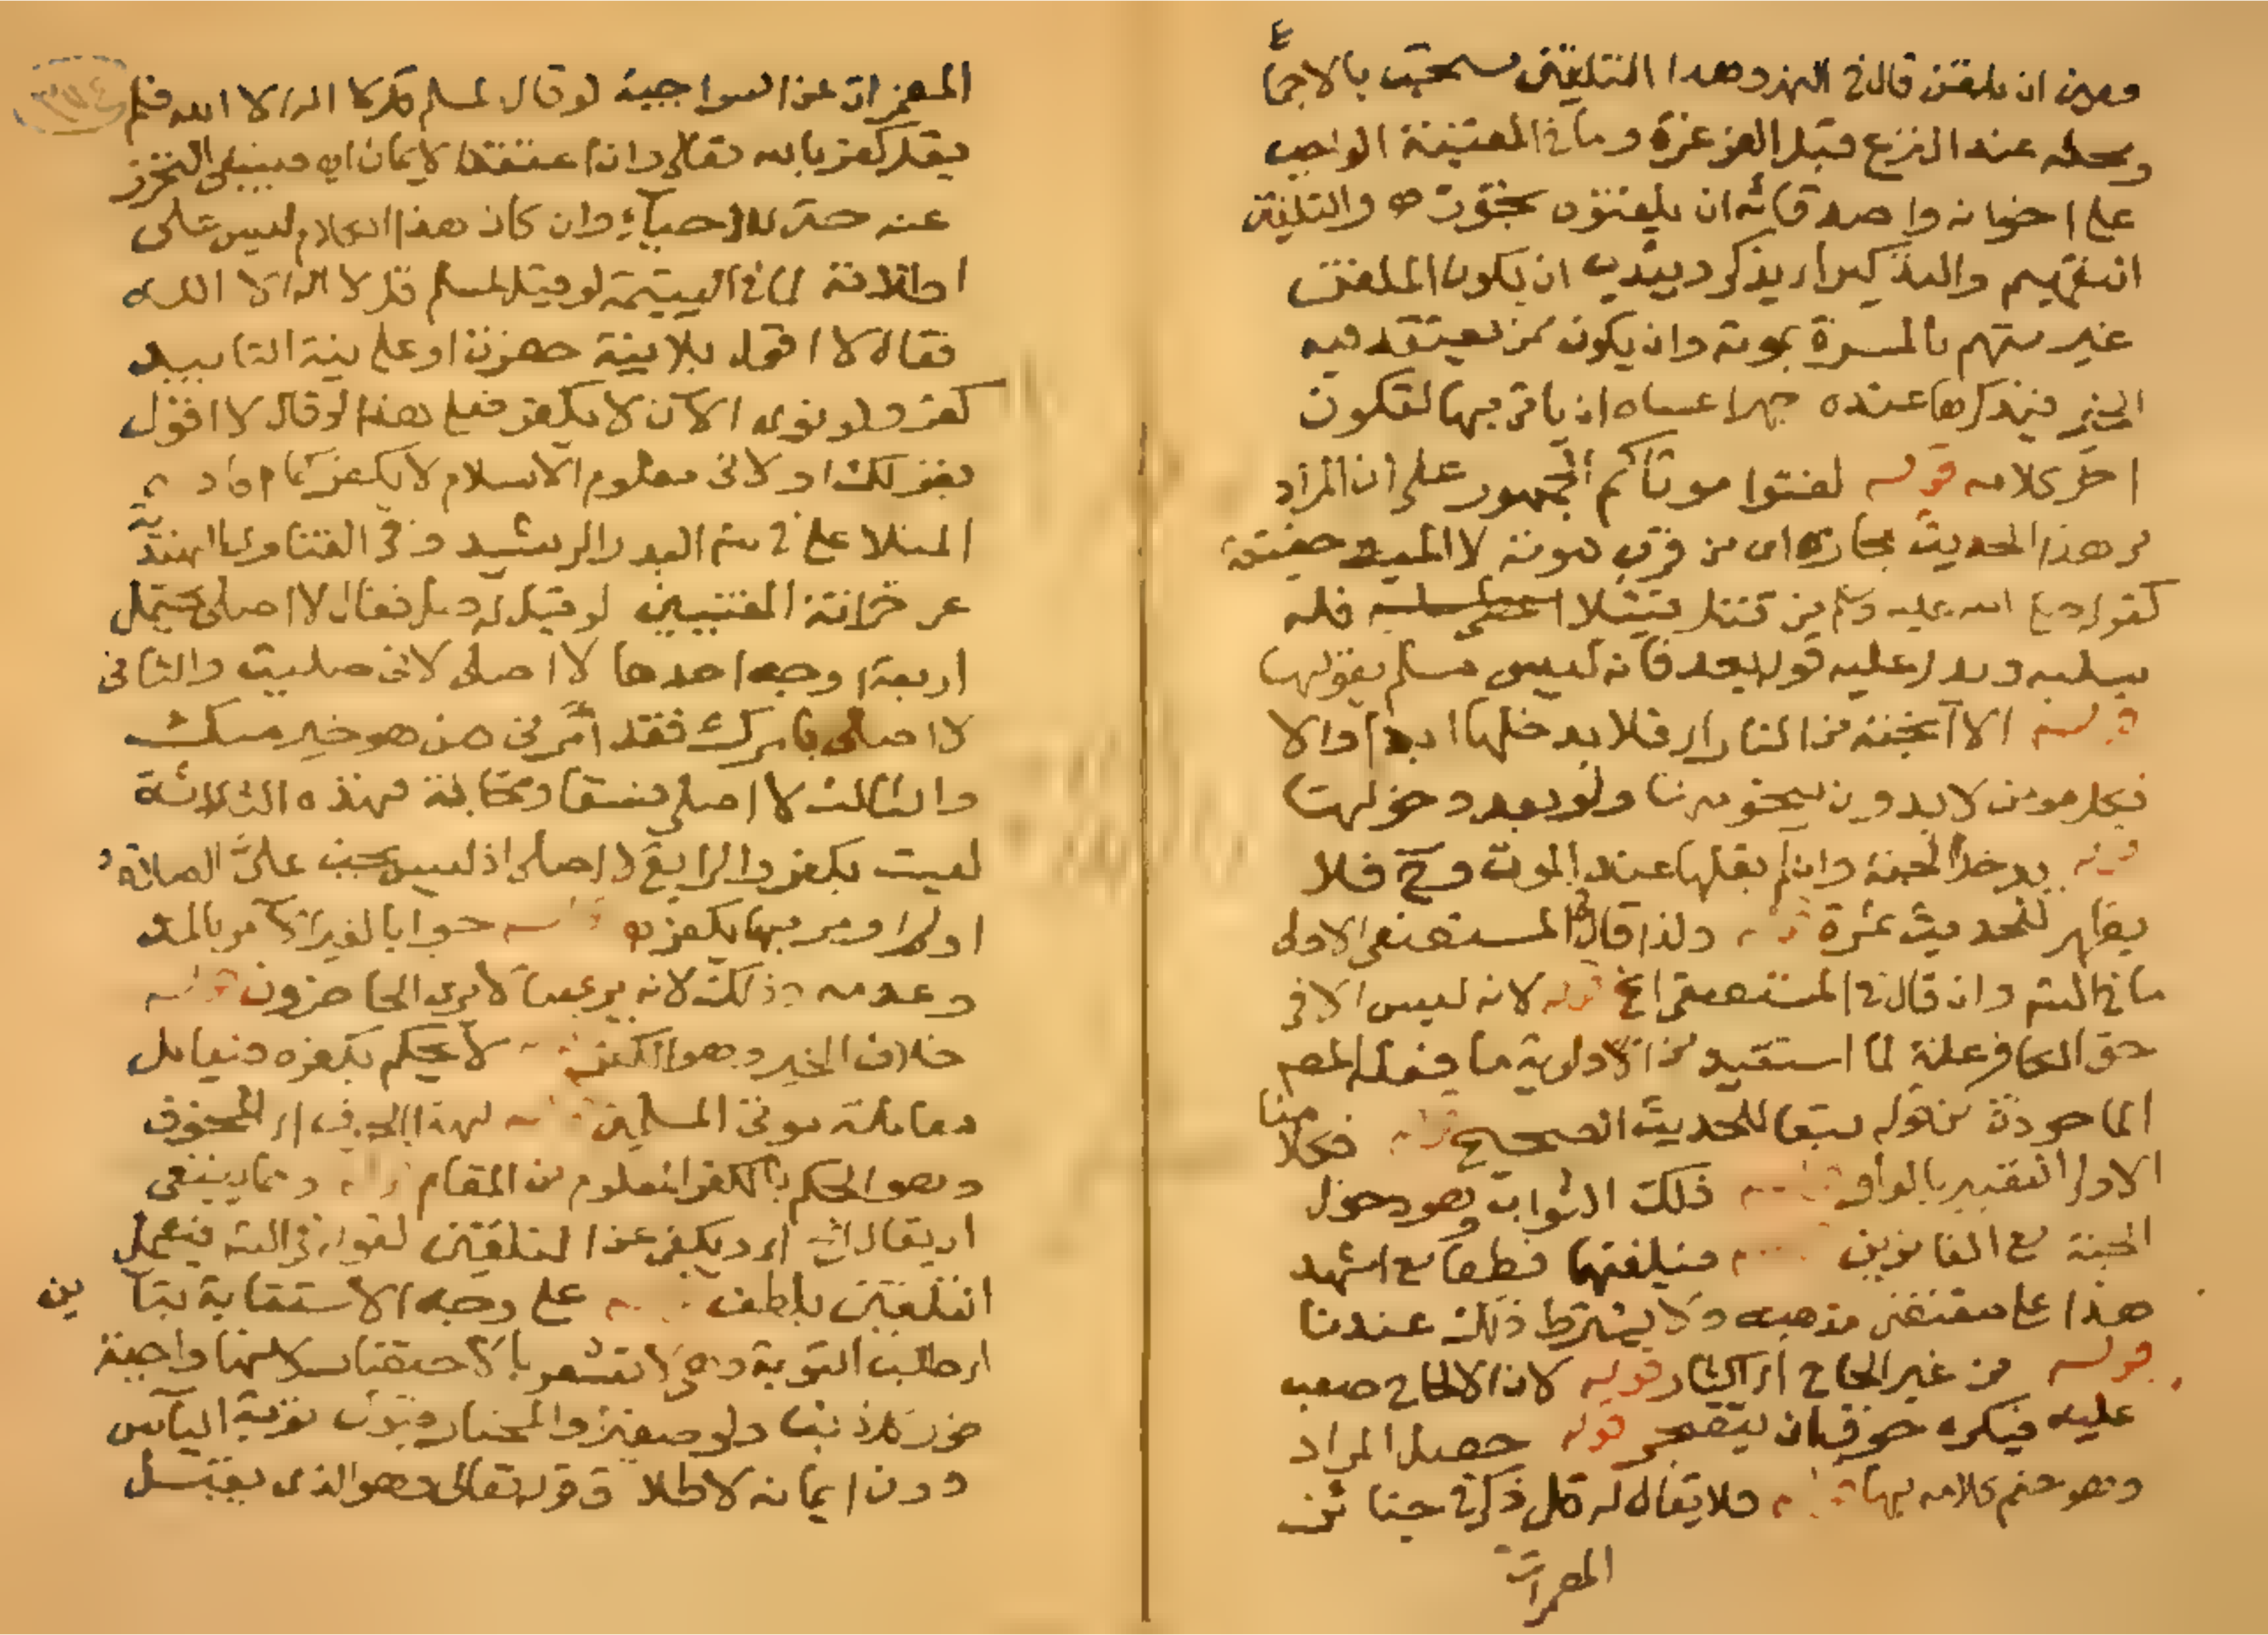 وعين ان يلقن قال في النهر وهذا التلقين مستحب بالاجماع
ومحله عند النزع قبل الغرغرة وما في القنية الواجب
على اخوانه واصدقائه ان يلقنوه تجوز اه والتلقين
التفهيم والتذكير اي يذكر ويندب ان يكون الملقن
غير متهم بالمسرة بموته وان يكون ممن يعتقد فيه
الخير فيذكرها عنده جهرا عساه ان ياتي بها لتكون
اخر كلامه قوله لقنوا موتاكم الجمهور على ان المراد
من هذا الحديث مجازه اي من قرب موته لا الميت حقيقة
كقوله صلى الله عليه وسلم من قتل قتيلا فله
سلبه ويدل عليه قوله بعد فانه ليس مسلم يقولها
قوله الا انجته من النار اي فلا يدخلها ابدا والا
فكل مومن لا بد وان ينجو منها ولو بعد دخولها
قوله يدخل الجنة وان لم يقلها عند الموت وح فلا
يظهر للحديث ثمرة قوله ولذا قال في المستصفى الاولى
ما في الشرح وان قال في المستصفى الخ قوله لانه ليس الا في
حق الكافر علة لما استفيد من الاولوية ما فعله المص
الماخوذة من قوله تبعا للحديث الصحيح قوله فكلامنا
الاولى التعبير بالواو قوله ذلك الثواب وهو دخول
الجنة مع الفائزين قوله فيلقنها قطعا مع اشهد
هذا على مقتضى مذهبه ولا يشترط ذلك عندنا
قوله من غير الحاح اي اكثار قوله لان الالحاح صعب
عليه فيكره خوف ان يتضجر قوله حصل المراد
وهو ختم كلامه بها قوله فلا يقال له قل ذكر في جنائز
المضمرات
المضمرات عن السراجية لو قال لمسلم قل لا اله الا الله فلم
يقل كفر بالله تعالى وان اعتقد الايمان اه فينبغي التحرز
عنه حتى للاصحاء وان كان هذا الكلام ليس على
اطلاقه لما في اليتيمة لو قيل لمسلم قل لا اله الا الله
فقال لا اقول بلا نية حضرت او على نية التابيد
كفر ولو نوى الآن لا يكفر فعلى هذا لو قال لا اقول
بقولك او لاني معلوم الاسلام لا يكفر كما
المنلا علي في شرح البدر الرشيد وفي الفتاوى الهندية
عن خزانة المفتيين لو قيل له صل فقال لا اصلي يحتمل
اربعة اوجه احدها لا اصلي لاني صليت والثاني
لا اصلي بامرك فقد امرني من هو خير منك
والثالث لا اصلي فسقا ومجانة فهذه الثلاثة
ليست بكفر والرابع لا اصلي اذ ليس يجب علي الصلاة
او لم اومر بها يكفر اه قوله جوابا لغير الامر بالمد
وعدمه وذلك لانه يرى ما لا يرى الحاضرون قوله
خلاف الخير وهو الكفر قوله لا يحكم بكفره ويعامل
معاملة موتى المسلمين قوله لهذا الخوف اي الخوف
وهو الحكم بالكفر المعلوم من المقام قوله ومما ينبغي
ان يقال له اي ويكفي عن التلقين لقوله في الشرح فيعمل
التلقين بلطف قوله على وجه الاستتابة بتاءين
اي طلب التوبة وهي لا تشعر بالاحتقار لانها واجبة
فورا كل ذنب ولو صغيرة والمختار قبول توبة اليآس
دون ايمانه لاطلاق قوله تعالى وهو الذي يقبل